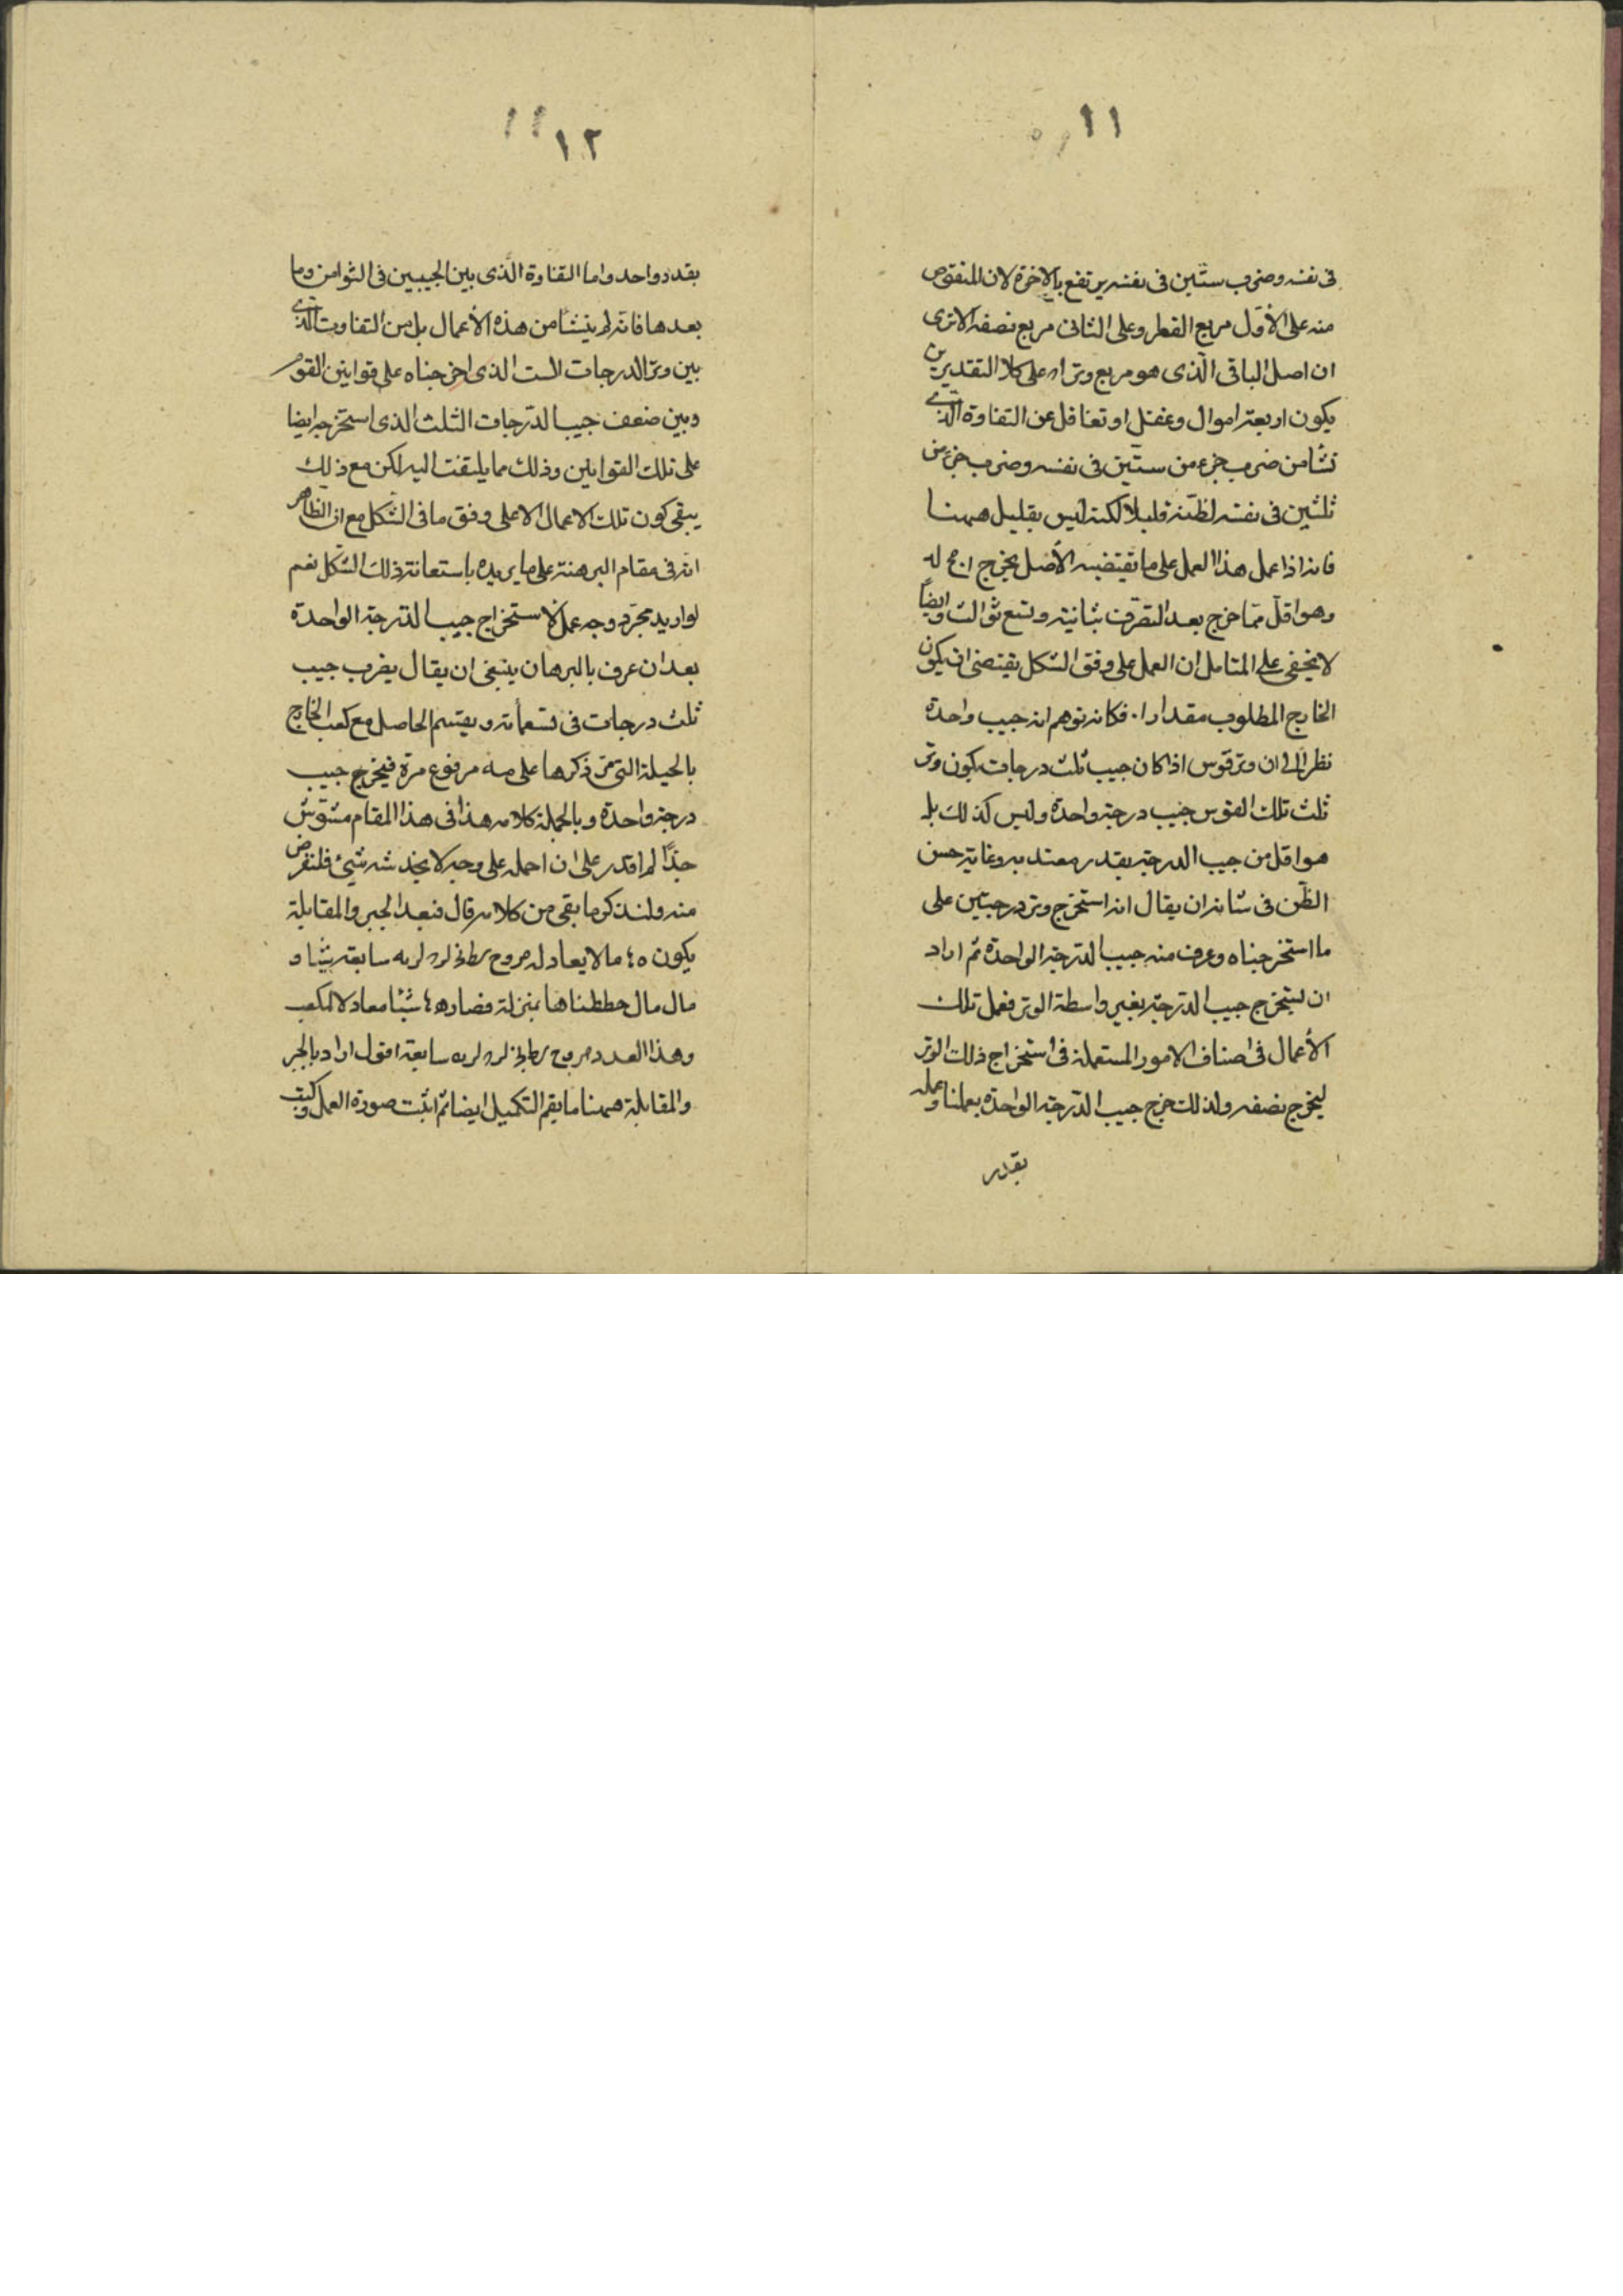 ١١
فى نفسه وضرب ستين فى نفسه يرتفع بالاخرة لان المنقوص
منه على الأوّل مربع القطر وعلى الثانى مربع نصفه الا ترى
ان اصل الباقى الّذى هو مربع وتر اه على كلا التقديرين
يكون اربعة اموال وغفل او تغافل عن التفاوة الّذى
نشا من ضرب جزء من ستّين فى نفسه وضرب جزء من
ثلثين فى نفسه لظنّه قليلا لكنه ليس بقليل ههنا
فانه اذا عمل هذا العمل على ما تقتضيه الأصل يخرج
وهو اقلّ ممّا خرج بعد التصرّف بثانية وتسع ثوالث وايضاً
لا يخفى على المتامل ان العمل على وفق الشكل يقتضى ان يكون
الخارج المطلوب مقدار ا٠ فكانه توهم انه جيب واحدة
نظرا الى ان وتر قوس اذا كان جيب ثلث درجات يكون وتر
ثلث تلك القوس جيب درجة واحدة وليس كذلك بل
هو اقل من جيب الدرجة بقدر معتد به وغاية حسن
الظّن فى شانه ان يقال انه استخرج وتر درجتين على
ما استخرجناه وعرف منه جيب الدّرجة الواحدة ثم اراد
ان يستخرج جيب الدّرجة بغير واسطة الوتر فعمل تلك
الأعمال فى اصناف الامور المستعملة فى استخراج ذلك الوتر
ليخرج نصفه ولذلك خرج جيب الدّرجة الواحدة بعملنا وعمله
بقدر
١٢
بقدر واحد واما التفاوة الّذى بين الجيبين فى الثوامن وما
بعدها فانّه لم ينشأ من هذه الأعمال بل من التفاوت الّذى
بين وتر الدرجات الست الذى اخرجناه على قوانين القوم
وبين ضعف جيب الدّرجات الثلث الذى استخرجه ايضا
على تلك القوانين وذلك مما يلتفت اليه لكن مع ذلك
يبقى كون تلك الاعمال لا على وفق ما فى الشكل مع ان الظاهر
انّه فى مقام البرهنة على ما يريده باستعانة ذلك الشكل نعم
لو اريد مجرّد وجه عمل لاستخراج جيب الدّرجة الواحدة
بعد ان عرف بالبرهان ينبغى ان يقال يضرب جيب
ثلث درجات فى تسعمأته ويقسم الحاصل مع كعب الخارج
بالحيلة التى مرّ ذكرها على مه مرفوع مرة فيخرج جيب
درجة واحدة وبالجملة كلامه هذا فى هذا المقام مشوّش
جدّا لم اقدر على ان احمله على وجه لا يخدشه شىء فلنعرض
منه ولنذكر ما بقى من كلامه قال فبعد الجبر والمقابلة
يكون مالا يعادل سابعة شيئا و
مال مال حططناها بمنزلة فصار شيئا معادلا لمكعب
وهذا العدد سابعة اقول اراد بالجبر
والمقابلة ههنا ما يقم التكميل ايضا ثم اثبت صورة العمل وكيف